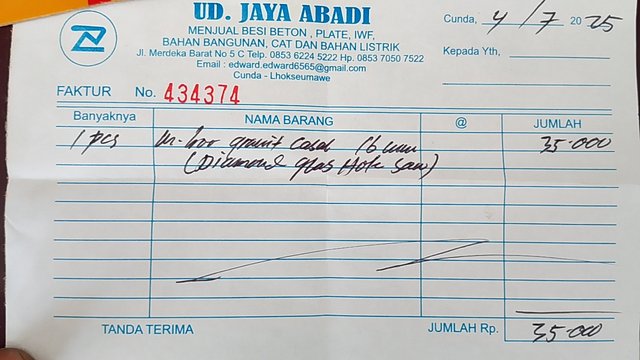 UD. JAYA ABADI
MENJUAL BESI BETON , PLATE, IWF,
BAHAN BANGUNAN, CAT DAN BAHAN LISTRIK
Jl. Merdeka Barat No 5 C Telp. 0853 6224 5222 Hp. 0853 7050 7522
Email : edward.edward6565@gmail.com
Cunda - Lhokseumawe
Cunda, 4/7 2025
Kepada Yth,
FAKTUR No. 434374
Banyaknya NAMA BARANG @ JUMLAH
1 pcs granit 16 mm 35.000
(Diamond glas Hole saw)
TANDA TERIMA JUMLAH Rp. 35.000